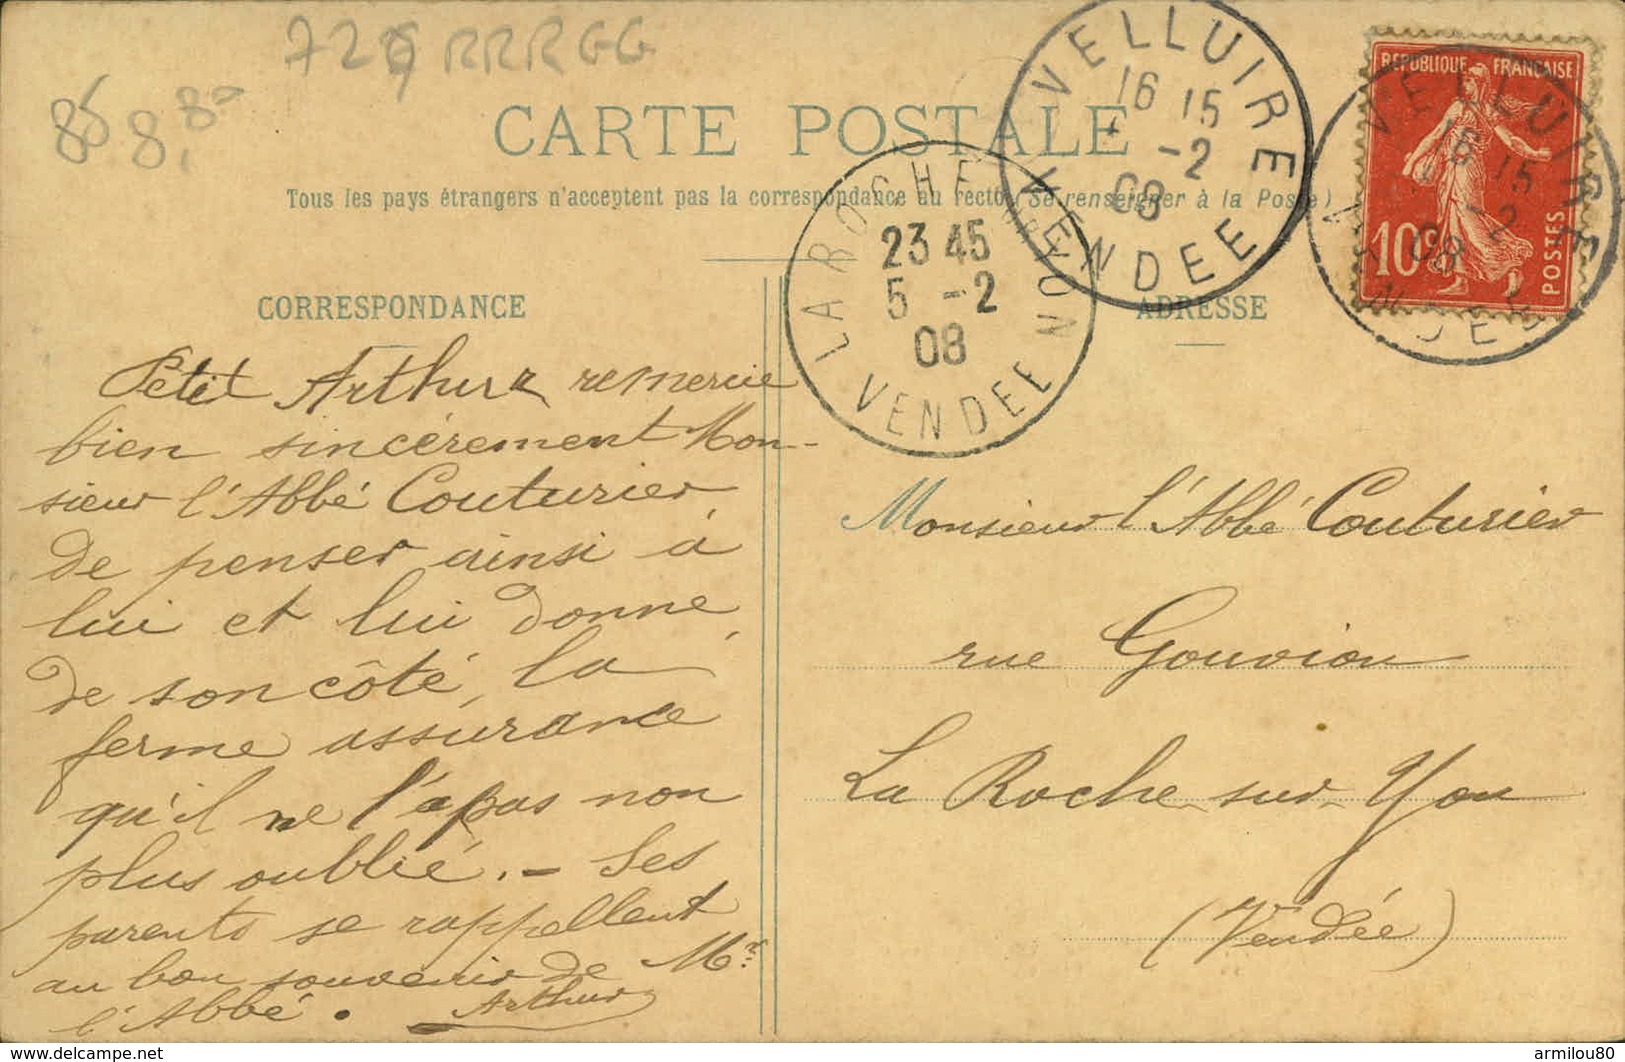 729 RRRGG
85 8,80
CARTE POSTALE
Tous les pays étrangers n'acceptent pas la correspondance au recto (Se renseigner à la Poste)
VELLUIRE
16 15
-2
08
VENDEE
REPUBLIQUE FRANCAISE
10c
POSTES
VELLUIRE
16 15
-2
08
LA ROCHE S YON
23 45
5 -2
08
VENDEE
CORRESPONDANCE
Petit Arthur remercie
bien sincérement Mon-
sieur l'Abbé Couturier,
de penser ainsi à
lui et lui donne,
de son côté, la
ferme assurance
qu'il ne l'a pas non
plus oublié. - Ses
parents se rappellent
au bon souvenir de Mr
l'Abbé. Arthur
ADRESSE
Monsieur l'Abbé Couturier
rue Gouvion
La Roche-sur-Yon
(Vendée)
armilou80